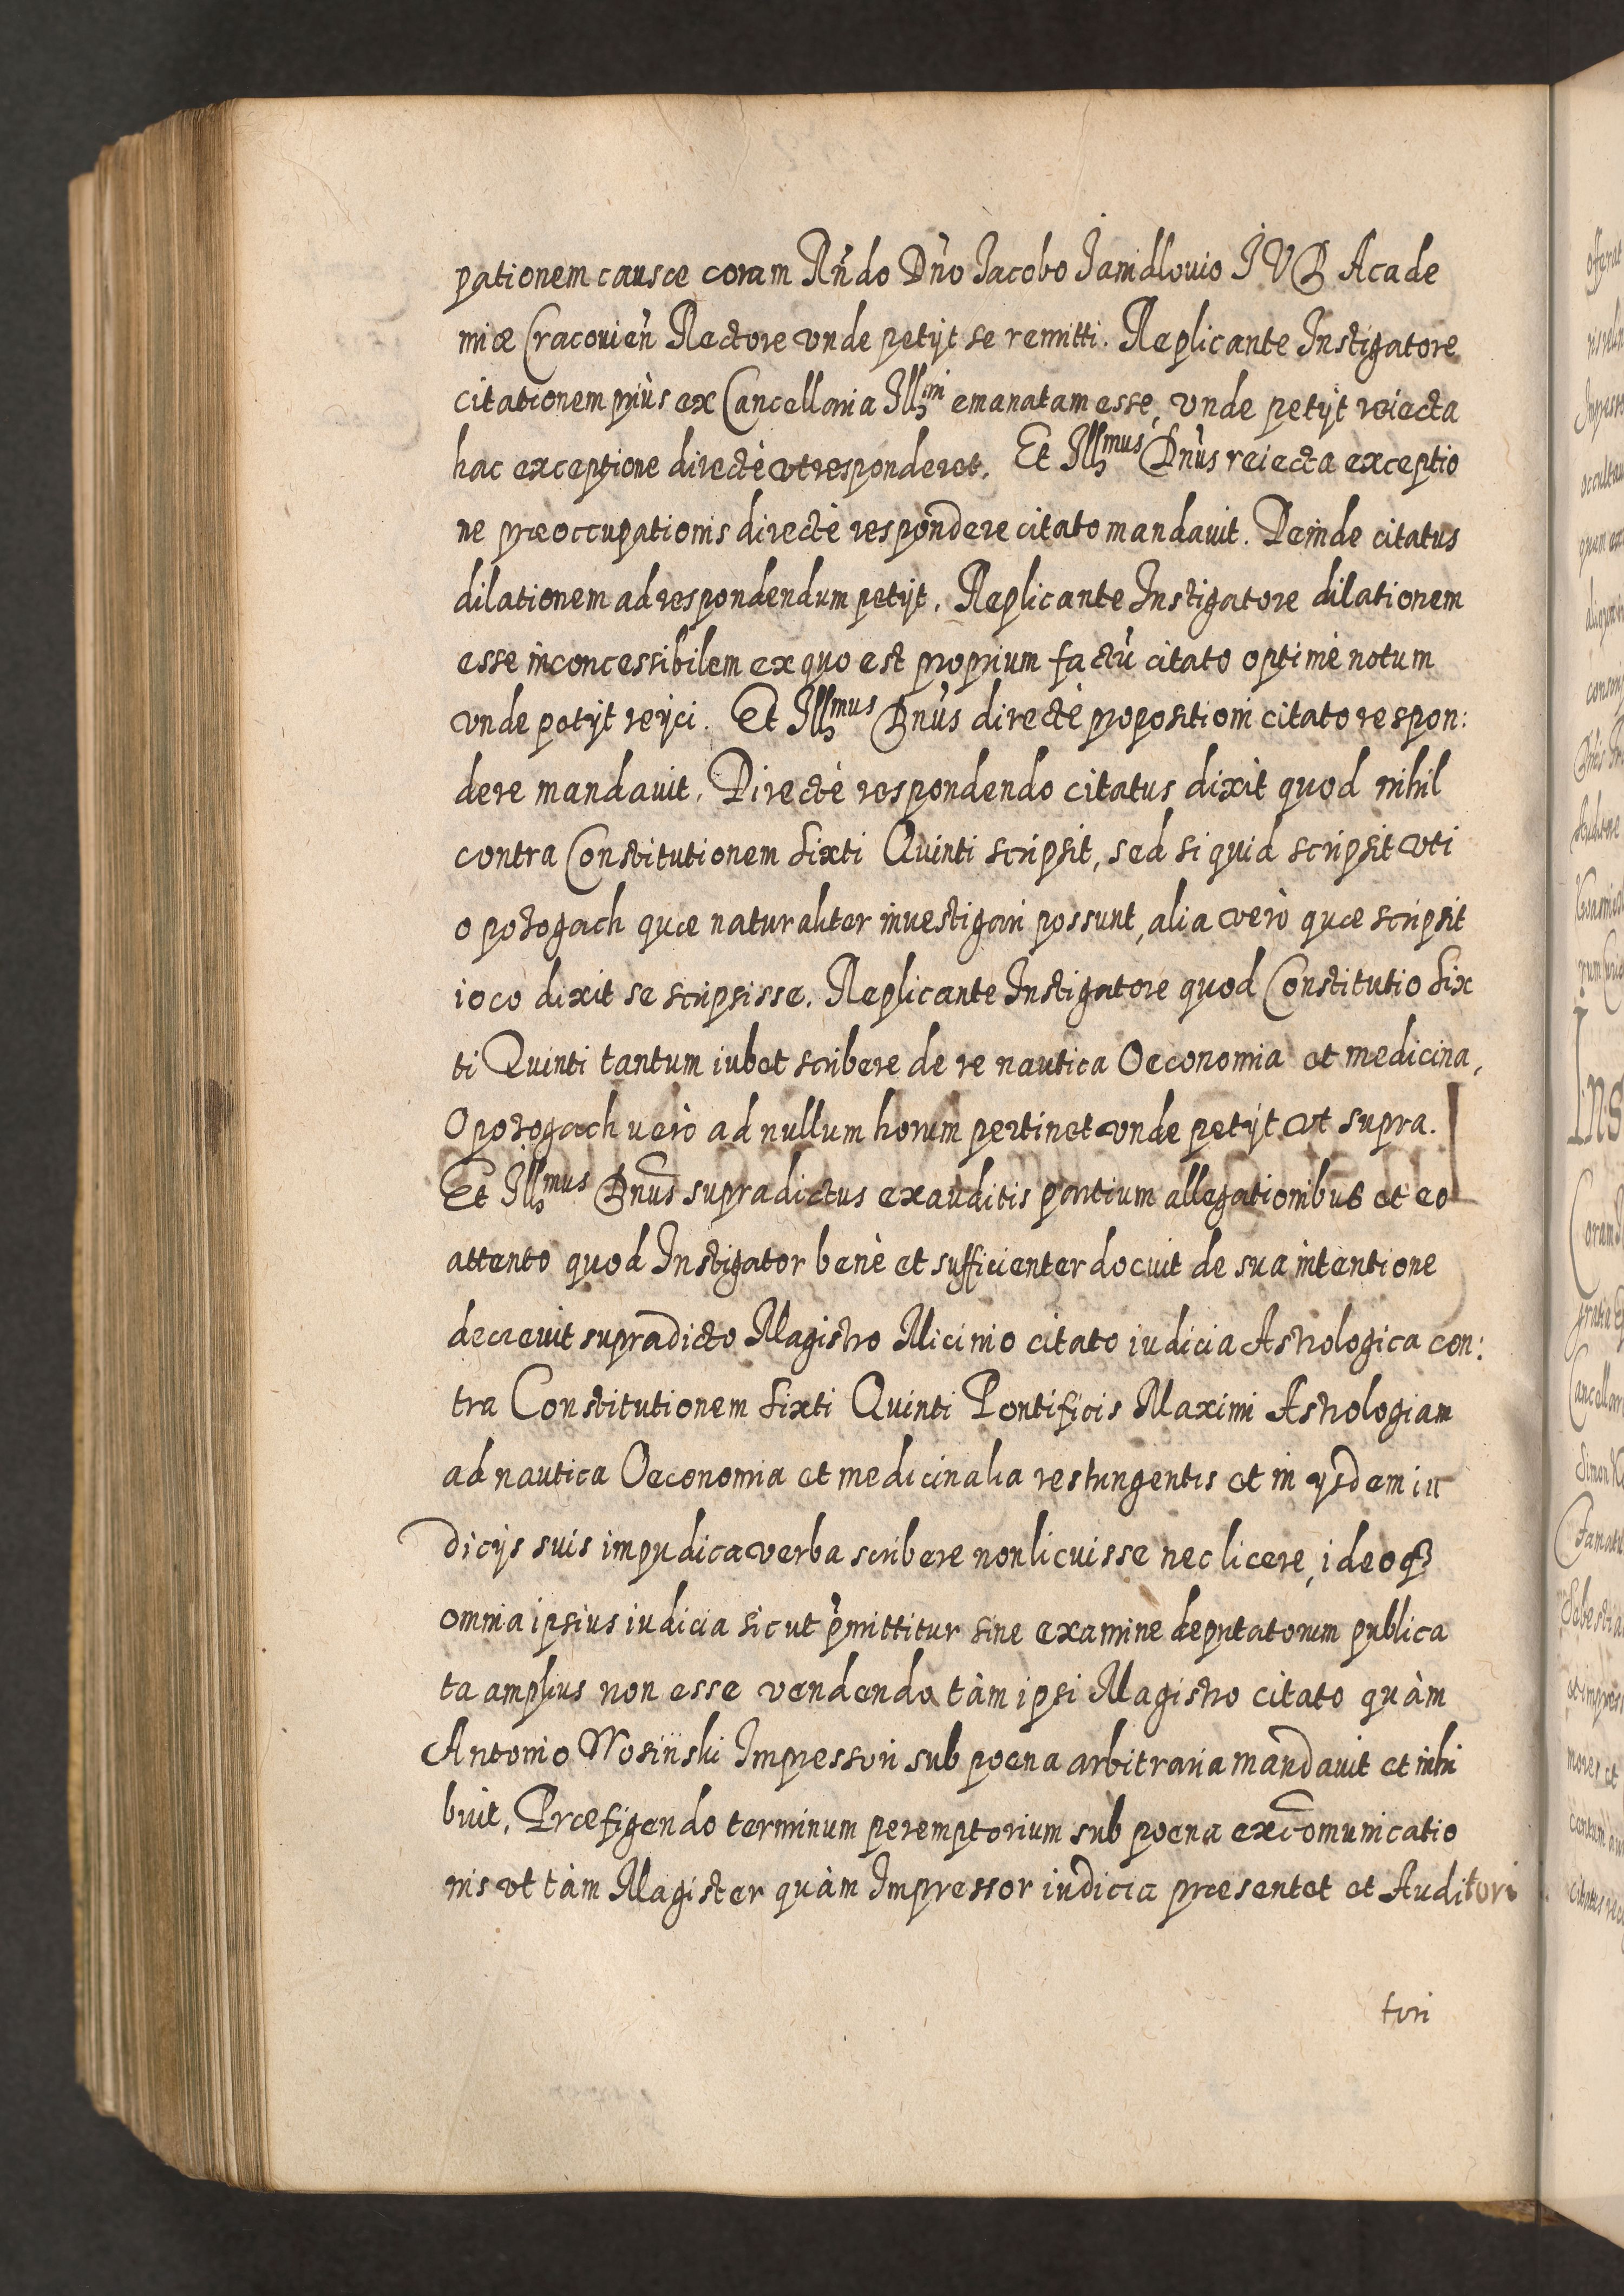 pationem causæ coram Rñdo Dño Jacobo Janidlouio JVD Acade
miæ Cracouieñ Rectore vnde petijt se remitti. Replicante Instigatore
citationem priùs ex Cancellaria Illmi emanatam esse, vnde petijt reiecta
hac exceptione directè vt responderet. Et Illmus Dñus reiecta exceptio
ne præoccupationis directè respondere citato mandauit. Deinde citatus
dilationem ad respondendum petijt. Replicante Instigatore dilationem
esse inconcessibilem ex quo est proprium factũ citato optimè notum
vnde petijt reijci. Et Illmus Dñus directè propositioni citato respon:
dere mandauit. Directè respondendo citatus dixit quod nihil
contra Constitutionem Sixti Quinti scripsit, sed si quid scripsit vti
o pozogach quæ naturaliter inuestigari possunt, alia verò quæ scripsit
ioco dixit se scripsisse. Replicante Instigatore quod Constitutio Six
ti Quinti tantum iubet scribere de re nautica Oeconomia et medicina,
O pozogach uerò ad nullum horum pertinet vnde petijt vt supra.
Et Illmus Dñus supradictus exauditis partium allegationibus et eo
attento quod Instigator benè et sufficienter docuit de sua intentione
decreuit supradicto Magistro Micinio citato iudicia Astrologica con:
tra Constitutionem Sixti Quinti Pontificis Maximi Astrologiam
ad nautica Oeconomia et medicinalia restringentis et in ysdem iu
dicijs suis impudica verba scribere non licuisse nec licere, ideoq3
omnia ipsius iudicia sicut p̃mittitur sine examine deputatorum publica
ta amplius non esse vendenda tàm ipsi Magistro citato quàm
Antonio Wosinski Impressori sub poena arbitraria mandauit et inhi
buit. Præfigendo terminum peremptorium sub poena excõmunicatio
nis vt tàm Magister quàm Impressor iudicia præsentet et Auditori
turi